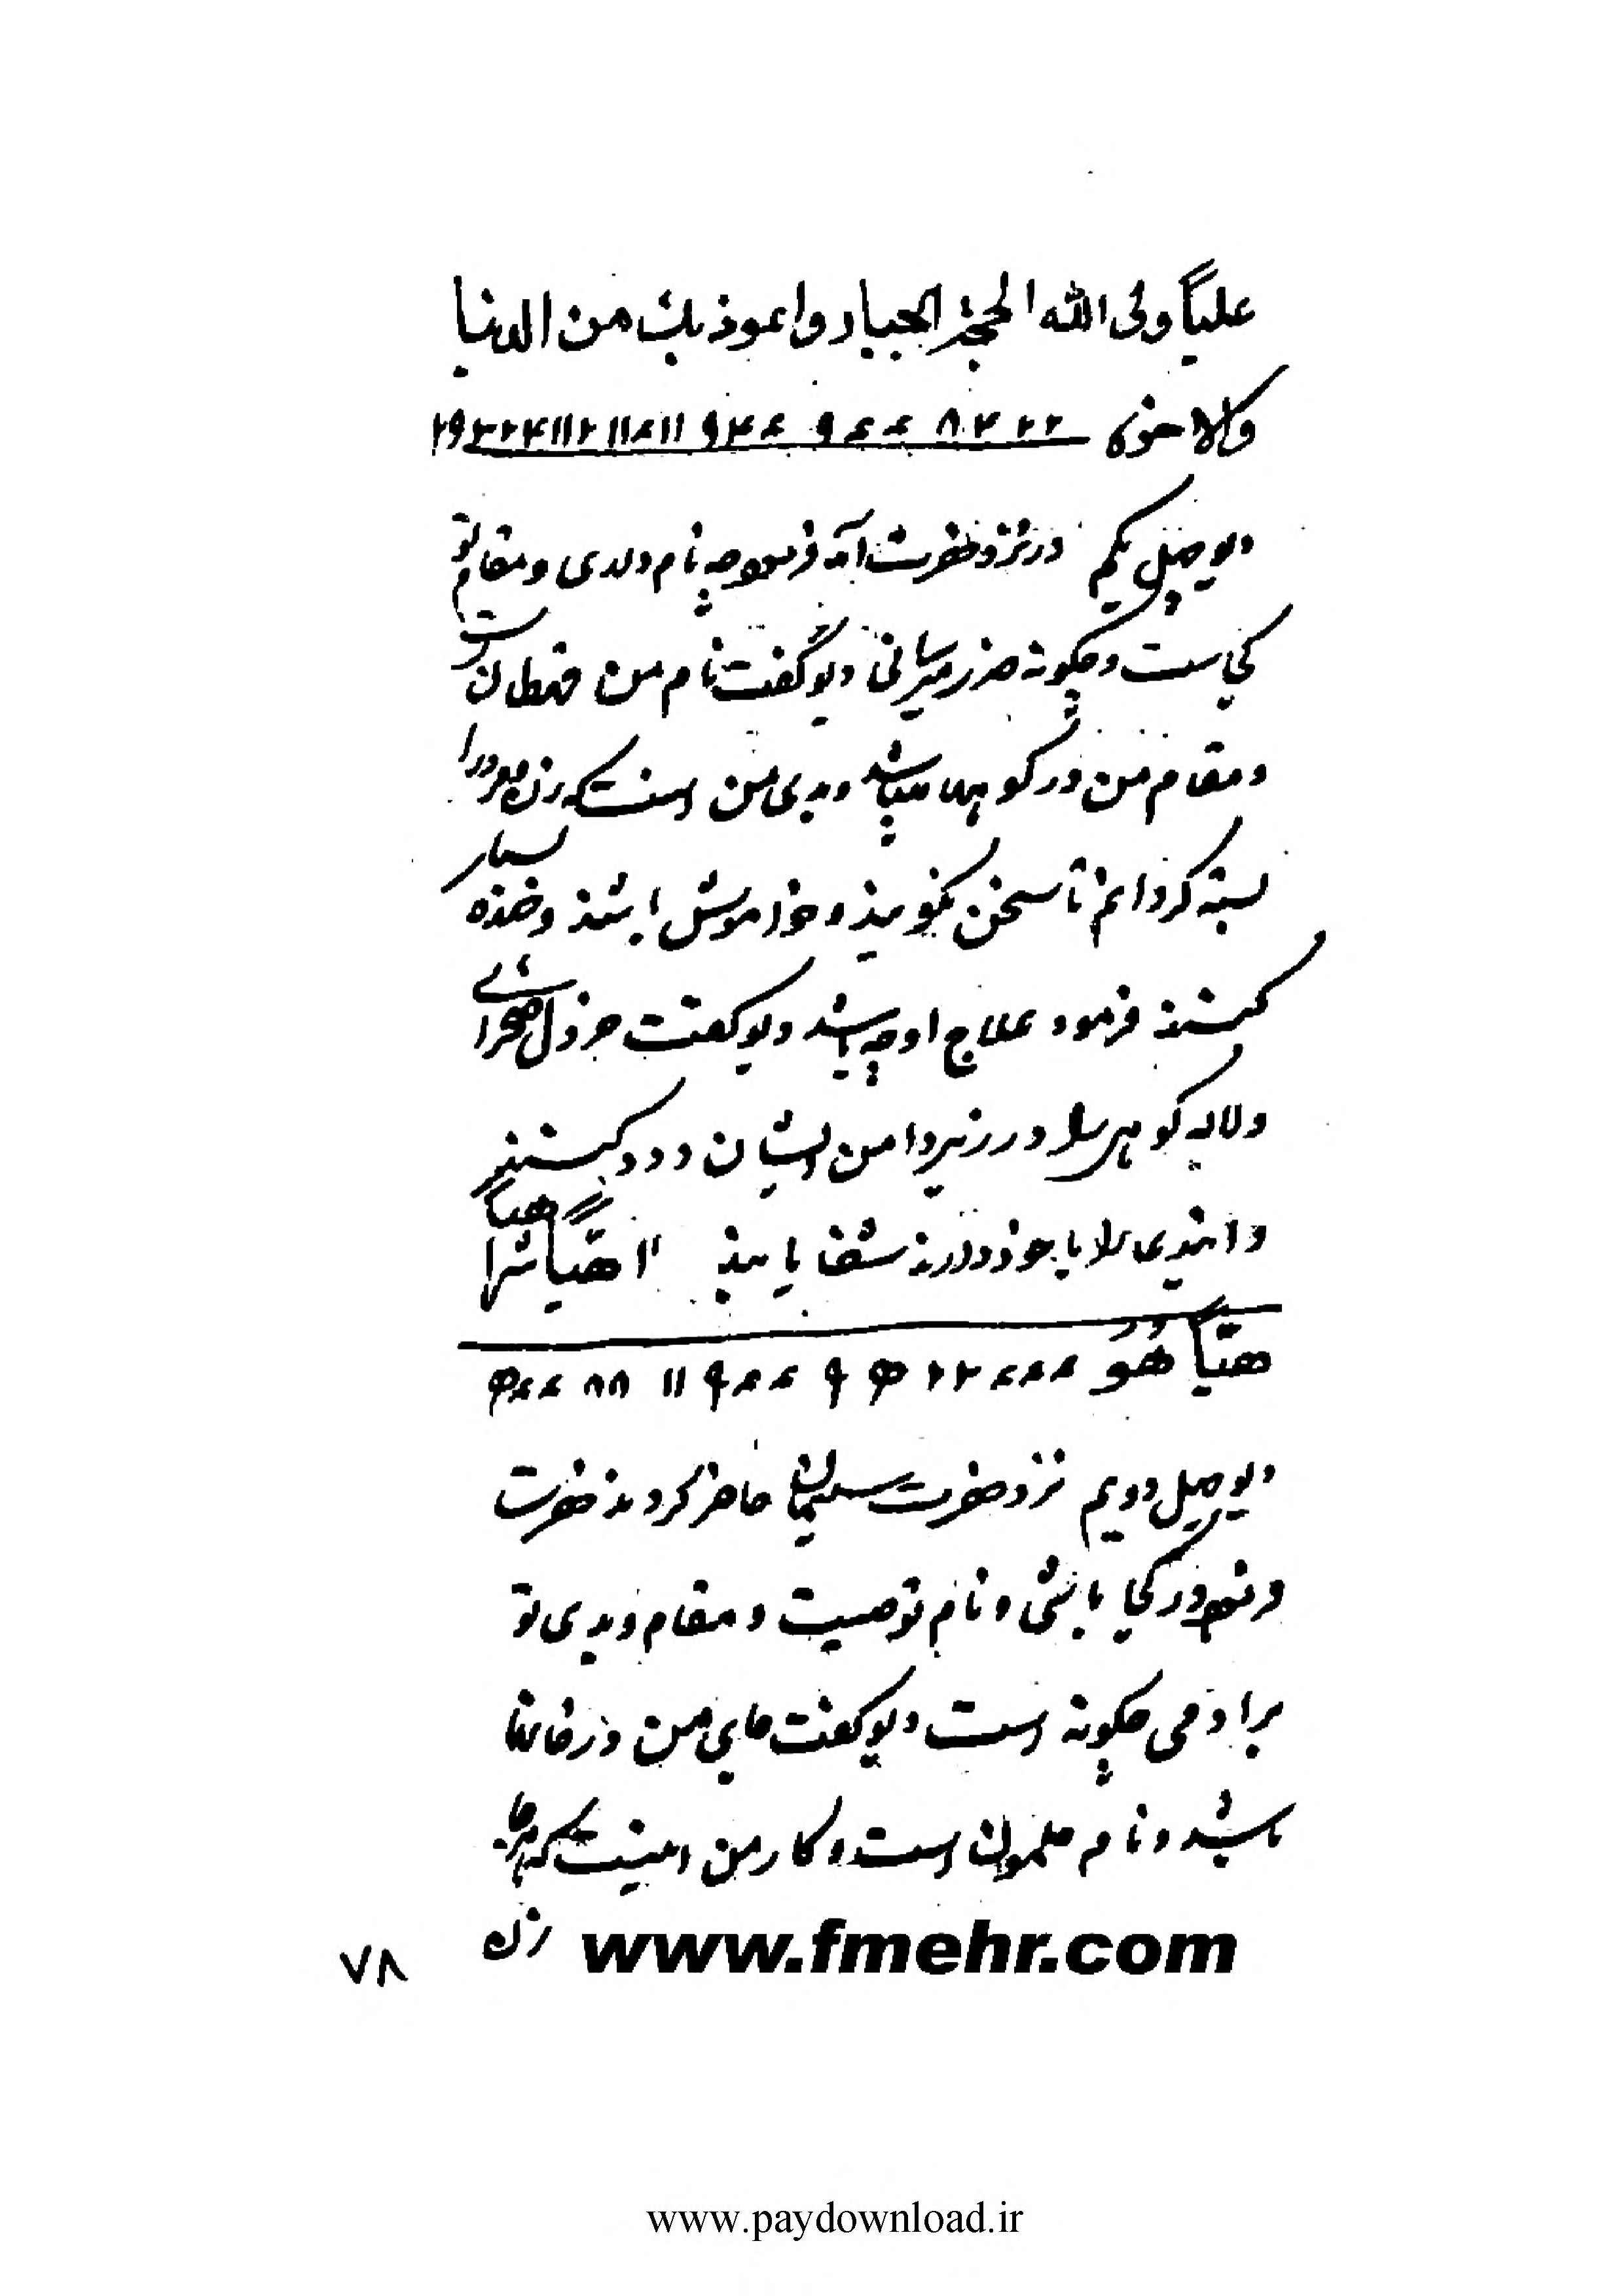 علیاً ولی الله الجبار واعوذ بك من الدنیا
والاخرة
دیو چهل یکم در نزد حضرت آمد فرمود چه نام داری و مقام تو
کجاست و چگونه ضرر میرسانی دیو گفت نام من قحطان است
و مقام من در کوهها میباشد و بدی من اینست که زن و مرد را
بسته گردانم تا سخن نگویند و خاموش باشند و خنده بسیار
کنند فرمود علاج او چه باشد دیو گفت خردل صحرائی
و لاله کوهی را در زیر دامن ایشان دود کنند
و این دعا را با خود دارند شفا یابند ١١ هیاً شها هیاً
هیاً هُوَ
دیو چهل دویم نزد حضرت سلیمان حاضر کردند حضرت
فرمود در کجا باشی و نام تو چیست و مقام و بدی تو
برادمی چگونه است دیو گفت جای من در خانها
باشد و نام است و کار من اینست که هرجا
زن
www.fmehr.com
٧٨
www.paydownload.ir